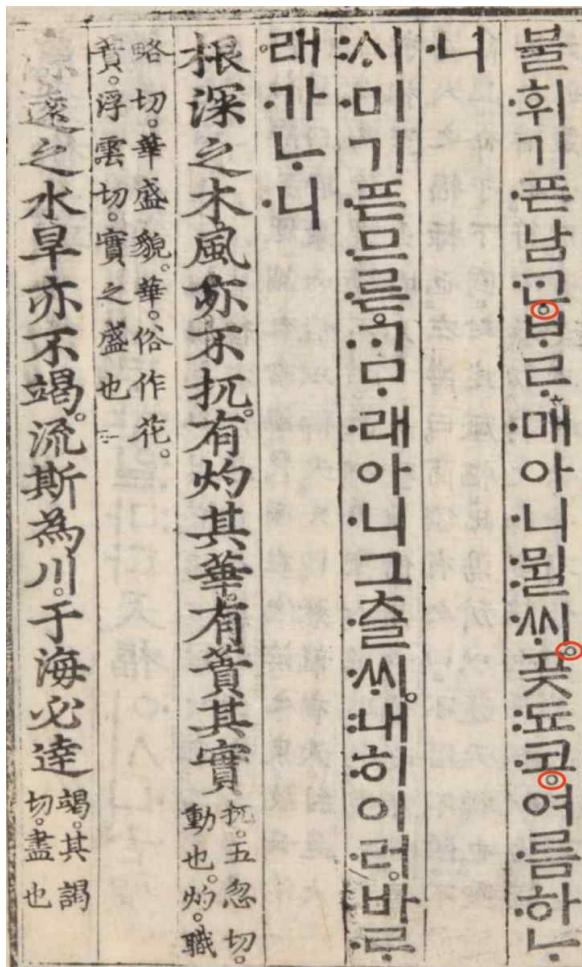 불휘기픈남ᄀᆞᆫ。ᄇᆞᄅᆞ매아니뮐ᄊᆡ。곶됴코。여름하ᄂᆞ
니
ᄉᆡ미기픈므른。ᄀᆞᄆᆞ래아니그츨ᄊᆡ。내히이러。바ᄅᆞ
래가ᄂᆞ니
根深之木風亦不扤。有灼其華。有蕡其實
扤。五忽切。
動也。灼。職
略切。華盛貌。華。俗作花。
蕡。浮雲切。實之盛也
源遠之水旱亦不竭。流斯為川。于海必達
竭。其謁
切。盡也